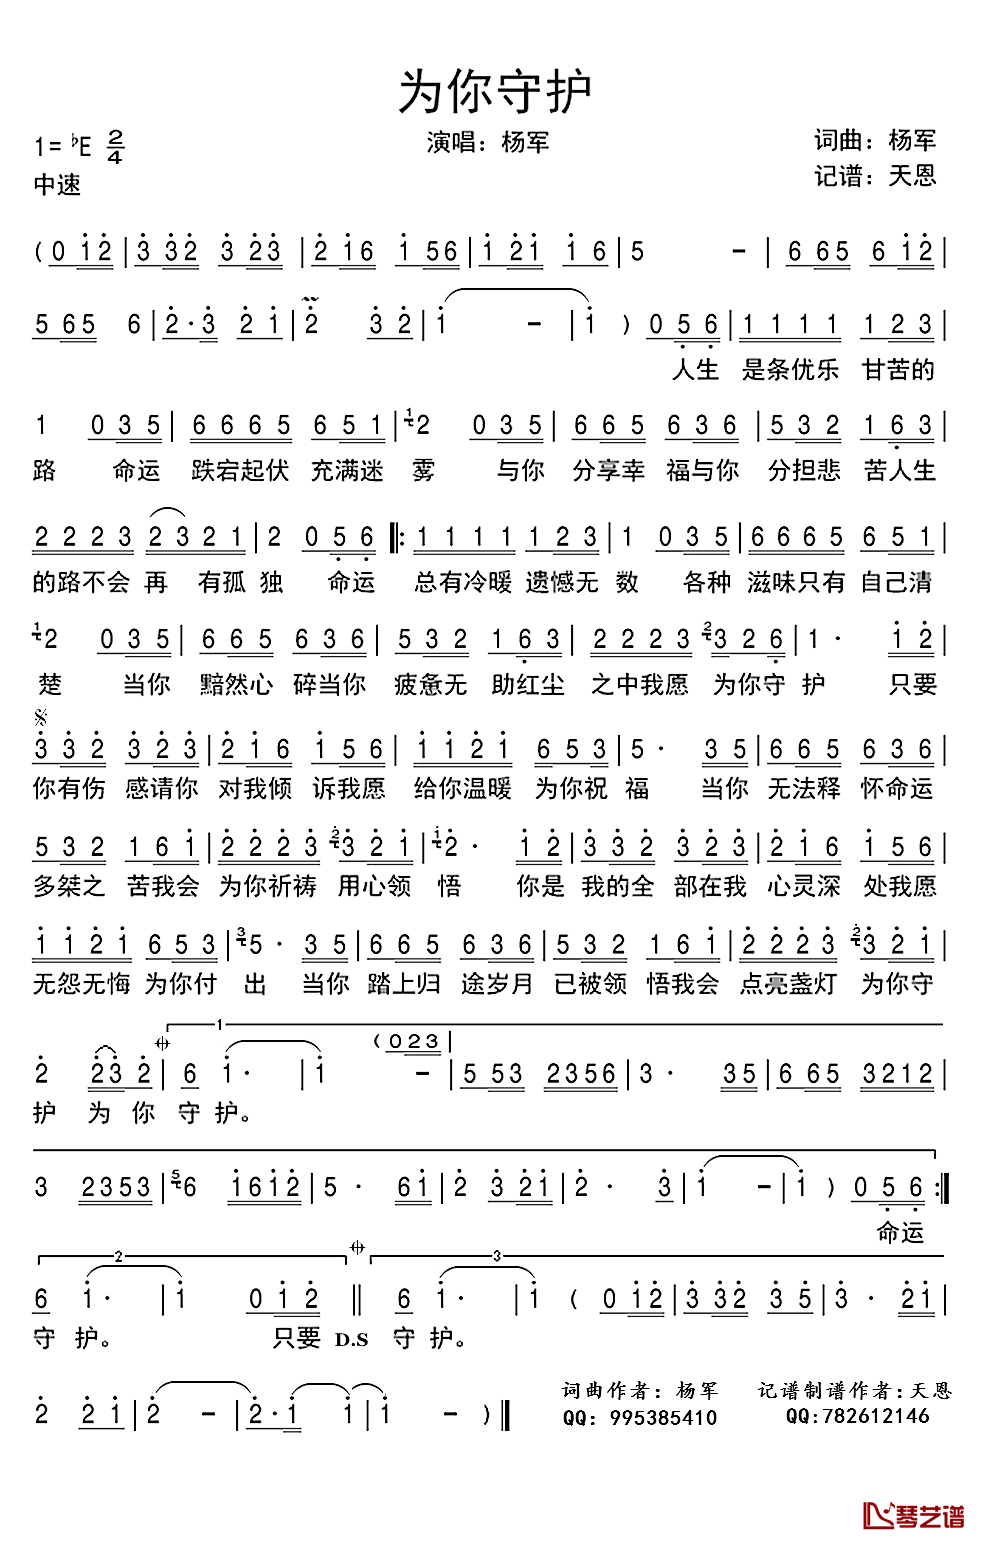 为你守护
1= ♭E 2/4 演唱：杨军 词曲：杨军
中速 记谱：天恩
( 0 i̇ 2̇ | 3̇ 3̇ 2̇ 3̇ 2̇ 3̇ | 2̇ i̇ 6 i̇ 5 6 | i̇ 2̇ i̇ i̇ 6 | 5 － | 6 6 5 6 i̇ 2̇ |
5 6 5 6 | 2̇ · 3̇ 2̇ i̇ | 2̇ 3̇ 2̇ | i̇ － | i̇ ) 0 5̣ 6̣ | 1 1 1 1 1 2 3 |
人生 是条优乐 甘苦的
1 0 3 5 | 6 6 6 5 6 5 1 | 1 2 0 3 5 | 6 6 5 6 3 6 | 5 3 2 1 6̣ 3 |
路 命运 跌宕起伏 充满迷 雾 与你 分享幸 福与你 分担悲 苦人生
2 2 2 3 2 3 2 1 | 2 0 5̣ 6̣ ‖: 1 1 1 1 1 2 3 | 1 0 3 5 | 6 6 6 5 6 5 1 |
的路不会 再 有孤 独 命运 总有冷暖 遗憾无 数 各种 滋味只有 自己清
1 2 0 3 5 | 6 6 5 6 3 6 | 5 3 2 1 6̣ 3 | 2 2 2 3 2 3 2 6̣ | 1 · i̇ 2̇ |
楚 当你 黯然心 碎当你 疲惫无 助红尘 之中我愿 为你守 护 只要
𝄋
3̇ 3̇ 2̇ 3̇ 2̇ 3̇ | 2̇ i̇ 6 i̇ 5 6 | i̇ i̇ 2̇ i̇ 6 5 3 | 5 · 3 5 | 6 6 5 6 3 6 |
你有伤 感请你 对我倾 诉我愿 给你温暖 为你祝 福 当你 无法释 怀命运
5 3 2 1 6 i̇ | 2̇ 2̇ 2̇ 3̇ 2̇ 3̇ 2̇ i̇ | i̇ 2̇ · i̇ 2̇ | 3̇ 3̇ 2̇ 3̇ 2̇ 3̇ | 2̇ i̇ 6 i̇ 5 6 |
多桀之 苦我会 为你祈祷 用心领 悟 你是 我的全 部在我 心灵深 处我愿
i̇ i̇ 2̇ i̇ 6 5 3 | 3 5 · 3 5 | 6 6 5 6 3 6 | 5 3 2 1 6 i̇ | 2̇ 2̇ 2̇ 3̇ 2̇ 3̇ 2̇ i̇ |
无怨无悔 为你付 出 当你 踏上归 途岁月 已被领 悟我会 点亮盏灯 为你守
1
( 0 2 3 |
2̇ 2̇ 3̇ 2̇ | 6 i̇ · | i̇ － | 5 5 3 2 3 5 6 | 3 · 3 5 | 6 6 5 3 2 1 2 |
护 为 你 守 护。
3 2 3 5 3 | 5 6 i̇ 6 i̇ 2̇ | 5 · 6 i̇ | 2̇ 3̇ 2̇ i̇ | 2̇ · 3̇ | i̇ － | i̇ ) 0 5̣ 6̣ :‖
命运
2 3
6 i̇ · | i̇ 0 i̇ 2̇ ‖ 6 i̇ · | i̇ ( 0 i̇ 2̇ | 3̇ 3̇ 2̇ 3̇ 5̇ | 3̇ · 2̇ i̇ |
守 护。 只要 D.S 守 护。
2̇ 2̇ i̇ | 2̇ － | 2̇ · i̇ i̇ | i̇ － ) ‖
词曲作者：杨军 记谱制谱作者：天恩
QQ：995385410 QQ:782612146
琴艺谱